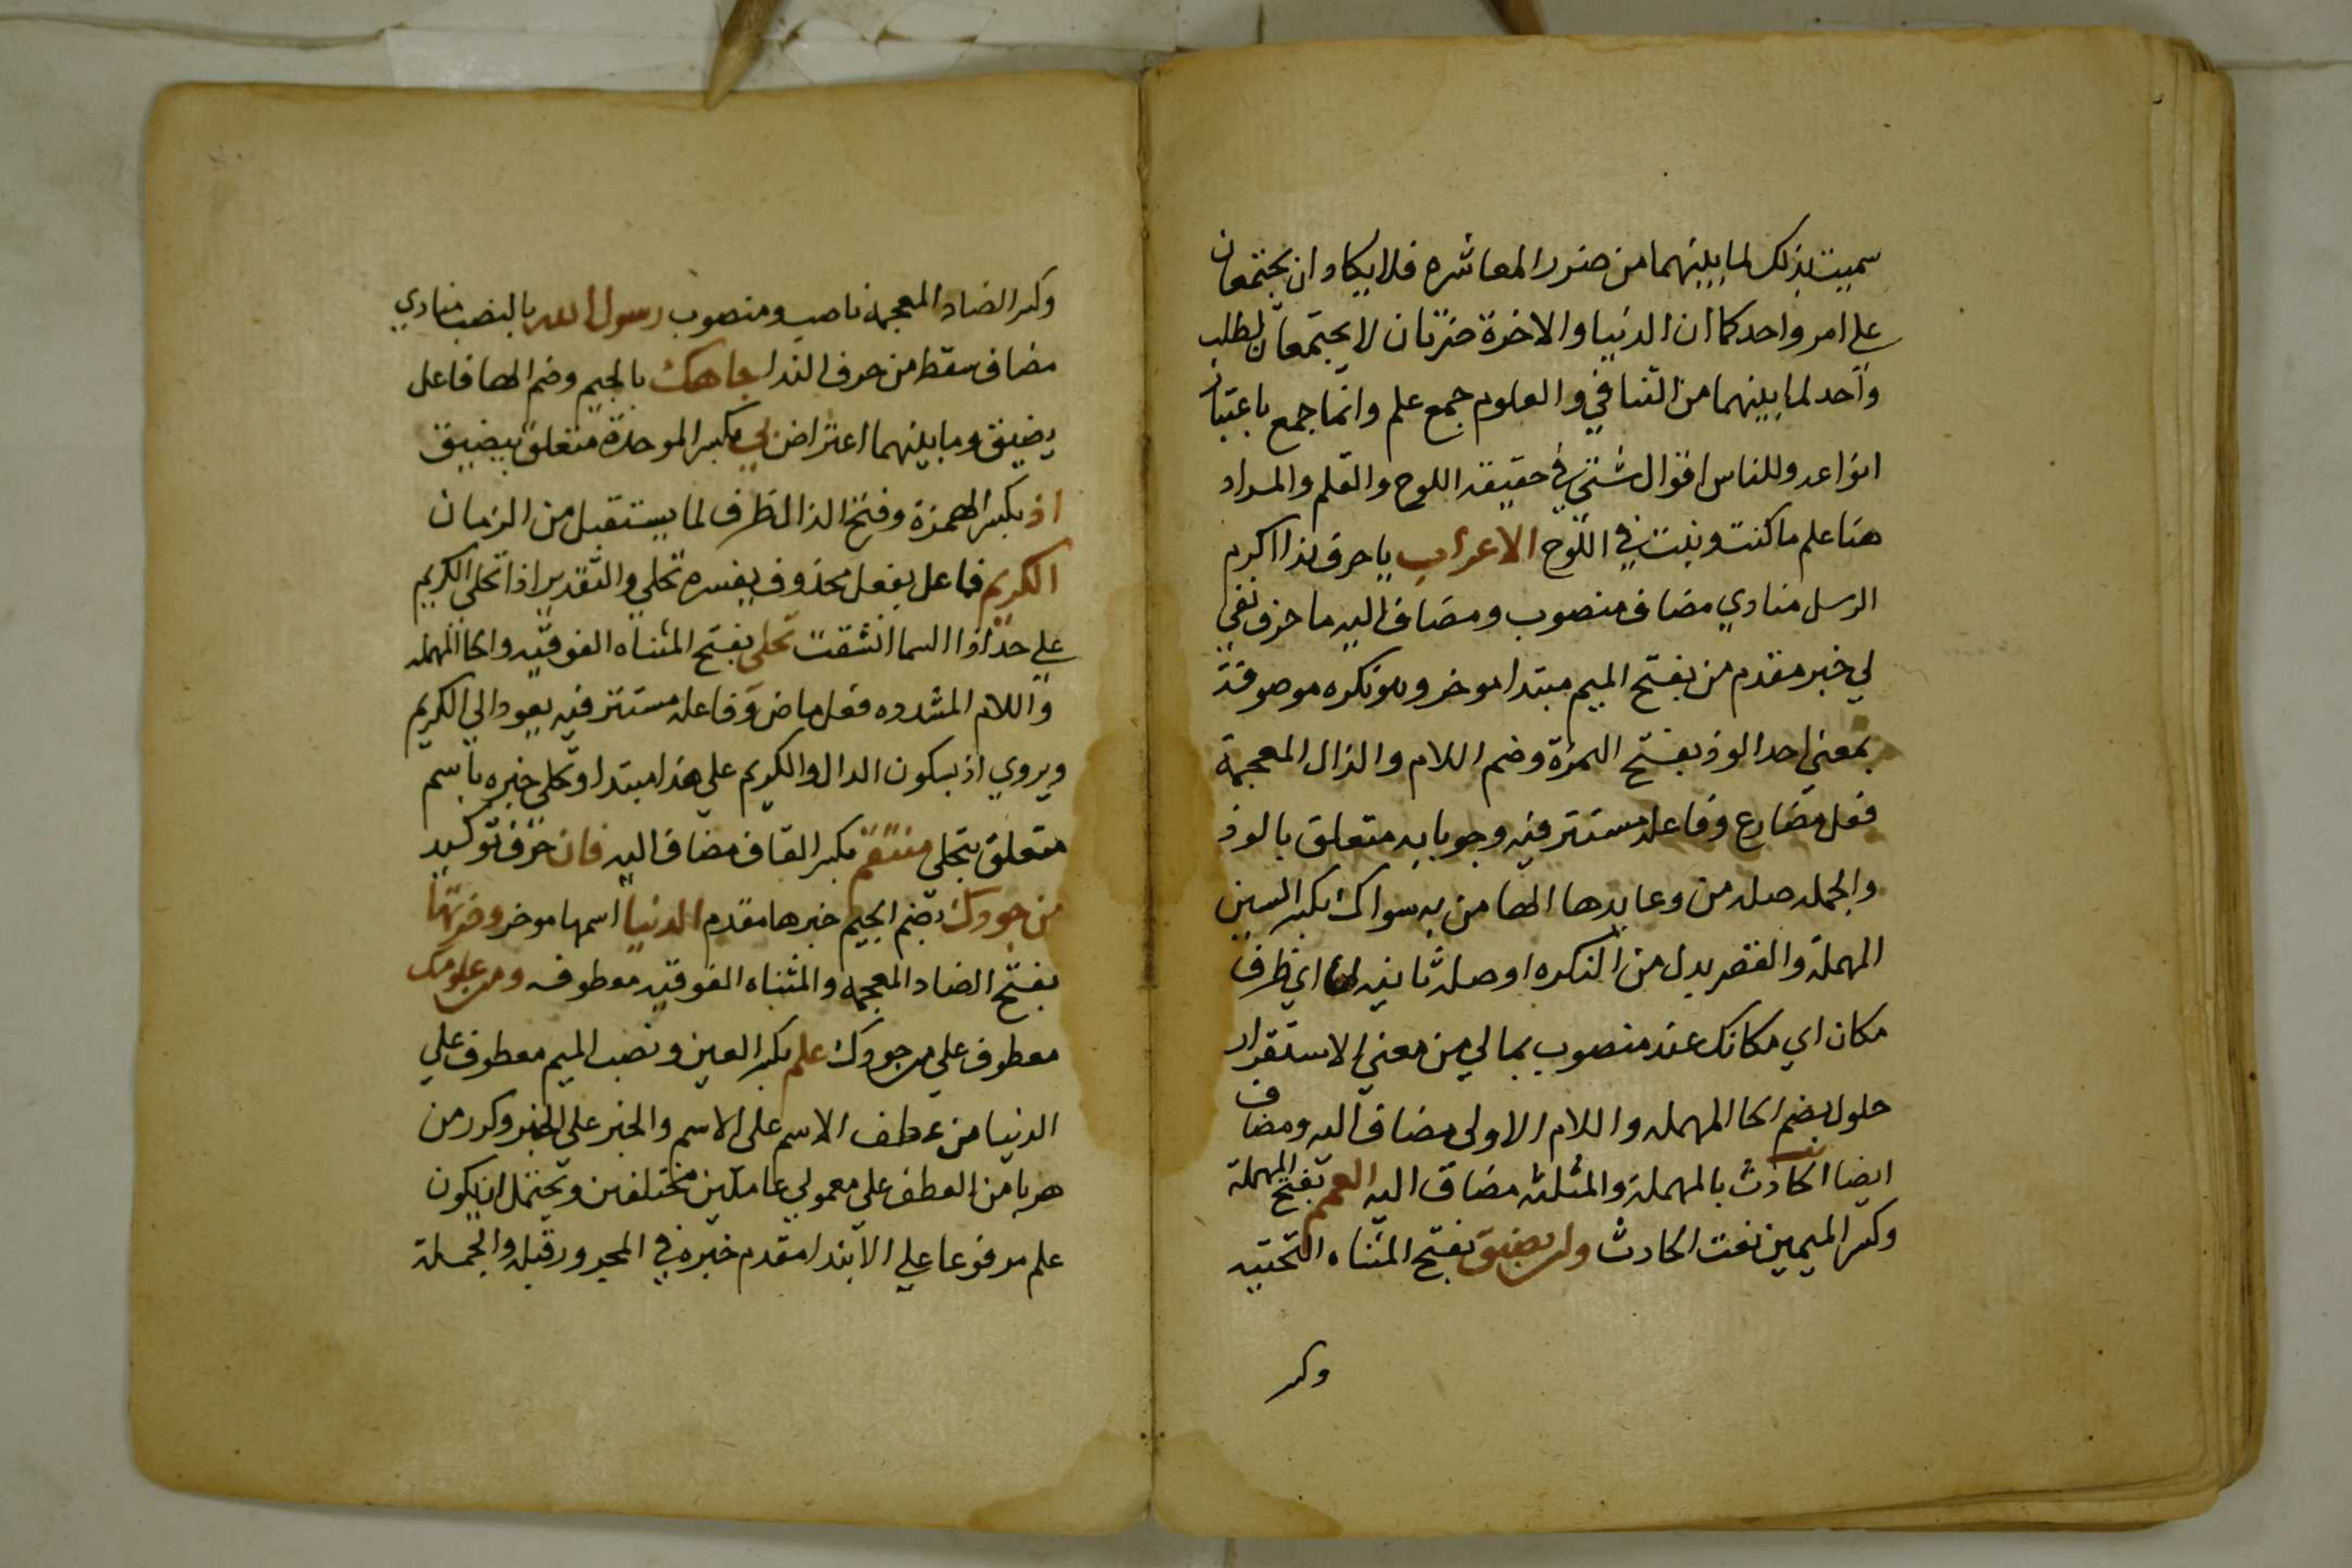 سميت بذلك لما بينهما من ضرر المعاشره فلا يكاد ان يجتمعان
علي امر واحد كما ان الدنيا والاخرة ضرتان لا يجتمعان لطلب
واحد لما بينهما من التنافي والعلوم جمع علم وانما جمع باعتبار
انواعه وللناس اقوال شتي في حقيقه اللوح والقلم والمراد
هنا علم ما كتب وثبت في اللوح الاعراب يا حرف ندا اكرم
الرسل منادي مضاف منصوب ومضاف اليه ما حرف نفي
لي خبر مقدم من بفتح الميم مبتدا موخر وهو نكره موصوفة
بمعني احد الوذ بفتح الهمزة وضم اللام والذال المعجمة
فعل مضارع وفاعله مستتر فيه وجوبا به متعلق بالوذ
والجمله صله من وعايدها الها من به سواك بكسر السين
المهملة والقصر بدل من النكره او صله ثانيه لها اي ظرف
مكان اي مكانك عند منصوب بما لي من معني الاستقرار
حلول بضم الحا المهمله واللام الاولى مضاف اليه ومضاف
ايضا الحادث بالمهملة والمثلثه مضاف اليه العمم بفتح المهملة
وكسر الميمين نعت الحادث ولن يضيق بفتح المثناه التحتيه
وكسر
وكسر الضاد المعجمة ناصب ومنصوب رسول الله بالنصب منادي
مضاف سقط من حرف الندا جاهك بالجيم وضم الها فاعل
يضيق وما بينهما اعتراض بي بكسر الموحدة متعلق بيضيق
اذ بكسر الهمزة وفتح الذال ظرف لما يستقبل من الزمان
الكريم فاعل بفعل محذوف يفسره تحلي والتقدير اذا تحلى الكريم
علي حد اذا السما انشقت تحلى بفتح المثناه الفوقيه والحا المهمله
واللام المشدده فعل ماض وفاعله مستتر فيه يعود الي الكريم
ويروي اذ بسكون الدال والكريم علي هذا مبتدا وتحلي خبره باسم
متعلق بتجلى منتقم بكسر القاف مضاف اليه فان حرف توكيد
من جودك بضم الجيم خبرها مقدم الدنيا اسمها موخر وضرتها
بفتح الضاد المعجمه والمثناه الفوقيه معطوفه ومن علومك
معطوف علي من جودك علم بكسر العين ونصب الميم معطوف علي
الدنيا من عطف الاسم على الاسم والخبر علي الخبر وكرر من
هربا من العطف علي معمولي عاملين مختلفين ويحتمل ان يكون
علم مرفوعا علي الابتدا مقدم خبره في المجرور قبله والجملة